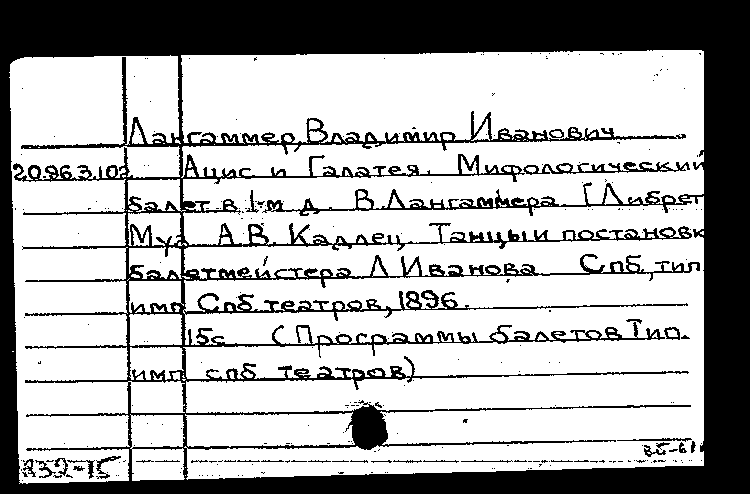 Лангаммер, Владимир Иванович
20.96.3.102 Ацис и Галатея. Мифологический
балет в 1-м д. В. Лангаммера. [Либрет
Муз А.В. Кадлец. Танцы и постановк
балетмейстера Л Иванова Спб, тип
имп Спб театров, 1896.
15с (Программы балетов Тип.
имп спб театров)
232-15